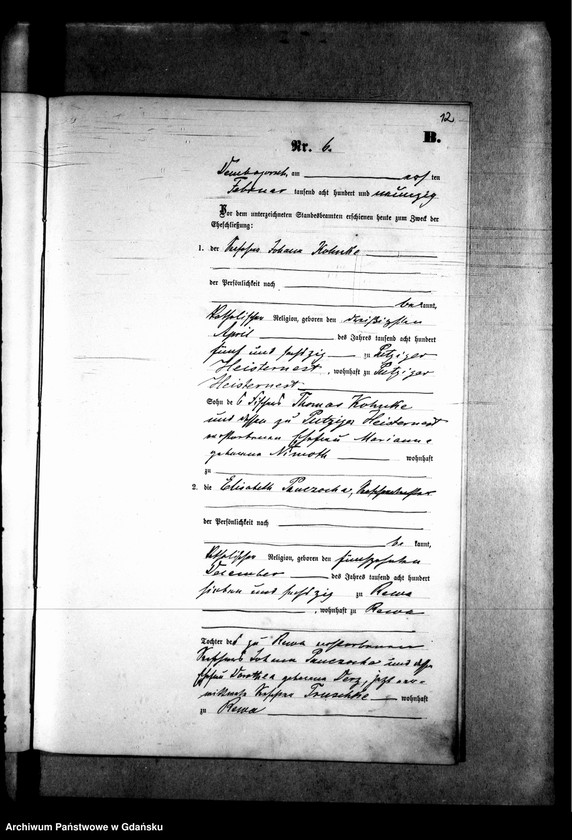 12
B.
Nr. 6.
am acht ten
Februar tausend acht hundert und neunzig
Vor dem unterzeichneten Standesbeamten erschienen heute zum Zweck der
Eheschließung:
1. der Fischer Johann Kohnke
der Persönlichkeit nach
be kannt,
katholischer Religion, geboren den dreißigsten
April des Jahres tausend acht hundert
fünf und sechzig zu Putziger
Heisternest, wohnhaft zu Putziger
Heisternest
Sohn des Fischers Thomas Kohnke
und dessen zu Putziger Heisternest
verstorbenen Ehefrau Marianne
geborene wohnhaft
zu
2. die Elisabeth
der Persönlichkeit nach
be kannt,
katholischer Religion, geboren den fünfzehnten
Dezember des Jahres tausend acht hundert
sieben und sechzig zu Rewa
, wohnhaft zu Rewa
Tochter des zu Rewa verstorbenen
Fischers Johann und dessen
Ehefrau Dorothea geborene jetzt ver-
wittwete wohnhaft
zu Rewa
Archiwum Państwowe w Gdańsku